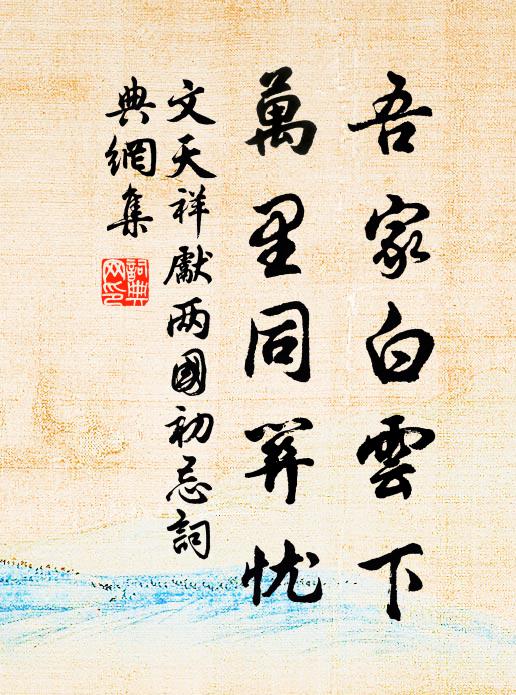 吾家白雲下
萬里同關忧
文天祥獻两國初忌詞
典網集
詞典
网印